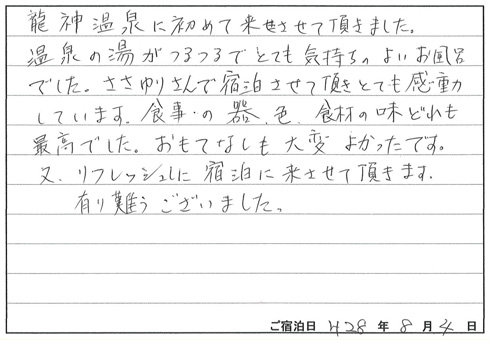 龍神温泉に初めて来せさせて頂きました。
温泉の湯がつるつるでとても気持ちのよいお風呂
でした。ささゆりさんで宿泊させて頂きとても感動
しています。食事の器、色、食材の味どれも
最高でした。おもてなしも大変よかったです。
又、リフレッシュしに宿泊に来させて頂きます。
有り難うございました。
ご宿泊日 H28年8月4日